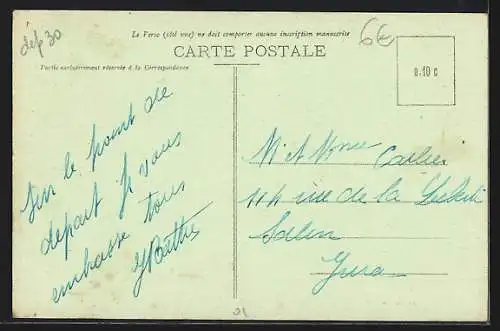 dep 30
Le Verso (côté vue) ne doit comporter aucune inscription manuscrite
CARTE POSTALE
6€
Partie exclusivement réservée à la Correspondance
0.10 c
Sur le point de
départ je vous
embrasse tous
M et Mme
rue de la
Salin
Jura